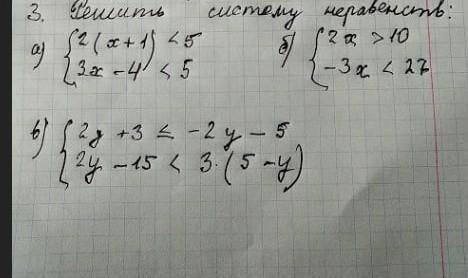 3. Решить систему неравенств:
а) { 2(x+1) < 5
3x - 4 < 5
б) { 2x > 10
-3x < 27
в) { 2y + 3 ≤ -2y - 5
2y - 15 < 3·(5 - y)